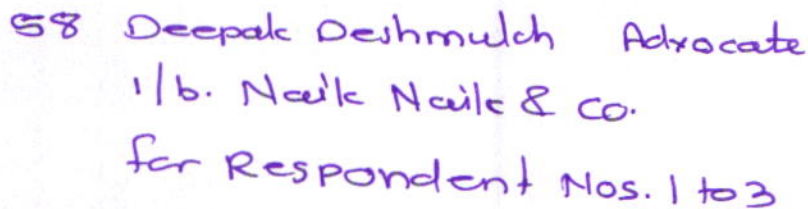 58 Deepak Deshmukh Advocate
i/b. Naik Naik & Co.
for Respondent Nos. 1 to 3